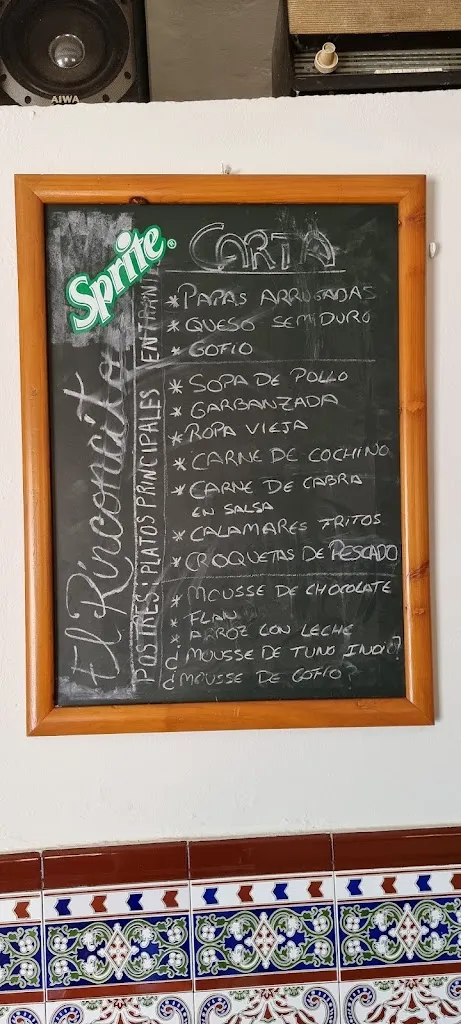 AIWA
Sprite
CARTA
* PAPAS ARRUGADAS
* QUESO SEMIDURO
* GOFIO
* SOPA DE POLLO
* GARBANZADA
* ROPA VIEJA
* CARNE DE COCHINO
* CARNE DE CABRA
EN SALSA
* CALAMARES FRITOS
* CROQUETAS DE PESCADO
* MOUSSE DE CHOCOLATE
* FLAN
* ARROZ CON LECHE
¿ MOUSSE DE TUNO INDIO?
¿ MOUSSE DE GOFIO?
El Rinconcito
POSTRES ; PLATOS PRINCIPALES